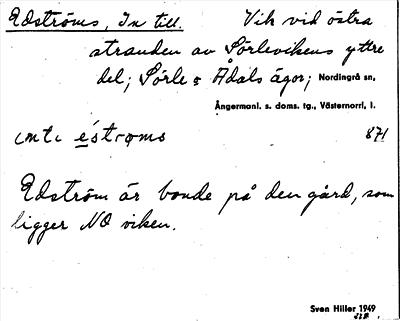 Edströms, In till. Vik vid östra
stranden av Sörlevikens yttre
del; Sörle o Ådals ägor; Nordingrå sn,
Ångermanl. s. doms. tg., Västernorrl. l.
éstroms 871
Edström är bonde på den gård, som
ligger NO viken.
Sven Hiller 1949